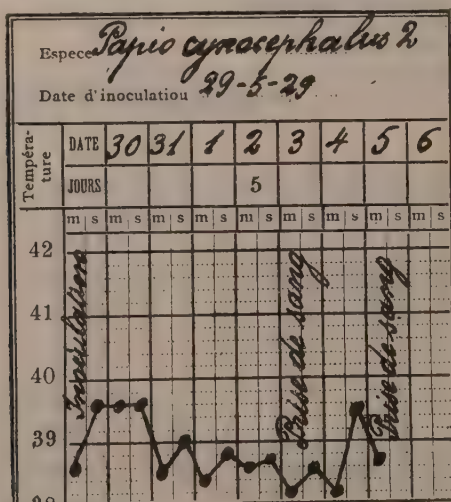 Espece Papio cynocephalus 2
Date d'inoculation 29-5-29
Température
DATE 30 31 1 2 3 4 5 6
JOURS 5
m s m s m s m s m s m s m s m s
42
41
40
39
38
Inoculation
Prise de sang
Prise de sang